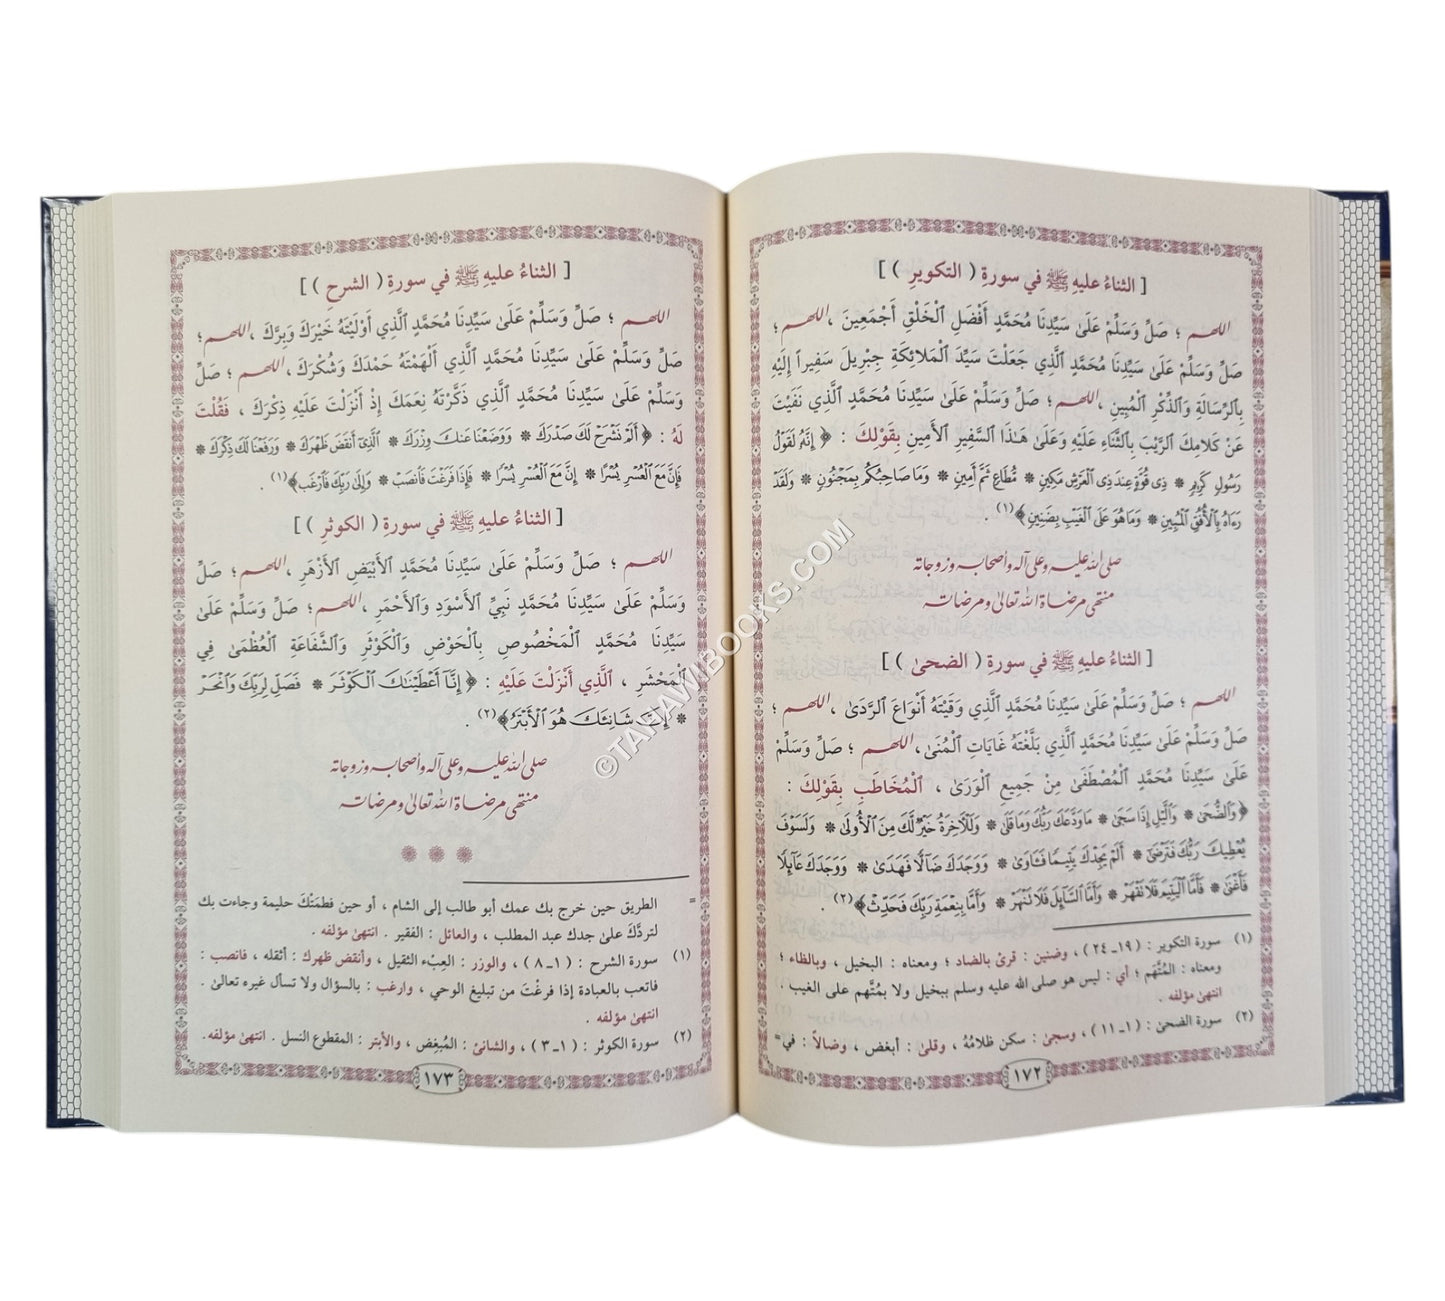 [ الثناءُ عليهِ ﷺ في سورةِ ( التكويرِ ) ]
اللهم ؛ صَلِّ وَسَلِّمْ عَلَىٰ سَيِّدِنَا مُحَمَّدٍ أَفْضَلِ ٱلْخَلْقِ أَجْمَعِينَ ، اللهم ؛
صَلِّ وَسَلِّمْ عَلَىٰ سَيِّدِنَا مُحَمَّدٍ ٱلَّذِي جَعَلْتَ سَيِّدَ ٱلْمَلَائِكَةِ جِبْرِيلَ سَفِيراً إِلَيْهِ
بِٱلرِّسَالَةِ وَٱلذِّكْرِ ٱلْمُبِينِ ، اللهم ؛ صَلِّ وَسَلِّمْ عَلَىٰ سَيِّدِنَا مُحَمَّدٍ ٱلَّذِي نَفَيْتَ
عَنْ كَلَامِكَ ٱلرَّيْبَ بِٱلثَّنَاءِ عَلَيْهِ وَعَلَىٰ هَـٰذَا ٱلسَّفِيرِ ٱلأَمِينِ بِقَوْلِكَ : ﴿ إِنَّهُۥ لَقَوْلُ
رَسُولٍ كَرِيمٍ * ذِى قُوَّةٍ عِندَ ذِى ٱلْعَرْشِ مَكِينٍ * مُّطَاعٍ ثَمَّ أَمِينٍ * وَمَا صَاحِبُكُم بِمَجْنُونٍ * وَلَقَدْ
رَءَاهُ بِٱلْأُفُقِ ٱلْمُبِينِ * وَمَا هُوَ عَلَى ٱلْغَيْبِ بِضَنِينٍ ﴾(١) .
صلى الله عليه وعلى آله وأصحابه وزوجاته
منتهى مرضاة الله تعالى ومرضاته
[ الثناءُ عليهِ ﷺ في سورةِ ( الضحىٰ ) ]
اللهم ؛ صَلِّ وَسَلِّمْ عَلَىٰ سَيِّدِنَا مُحَمَّدٍ ٱلَّذِي وَقَيْتَهُ أَنْوَاعَ ٱلرَّدَىٰ ، اللهم ؛
صَلِّ وَسَلِّمْ عَلَىٰ سَيِّدِنَا مُحَمَّدٍ ٱلَّذِي بَلَّغْتَهُ غَايَاتِ ٱلْمُنَىٰ ، اللهم ؛ صَلِّ وَسَلِّمْ
عَلَىٰ سَيِّدِنَا مُحَمَّدٍ ٱلْمُصْطَفَىٰ مِنْ جَمِيعِ ٱلْوَرَىٰ ، ٱلْمُخَاطَبِ بِقَوْلِكَ :
﴿ وَٱلضُّحَىٰ * وَٱلَّيْلِ إِذَا سَجَىٰ * مَا وَدَّعَكَ رَبُّكَ وَمَا قَلَىٰ * وَلَلْآخِرَةُ خَيْرٌ لَّكَ مِنَ ٱلْأُولَىٰ * وَلَسَوْفَ
يُعْطِيكَ رَبُّكَ فَتَرْضَىٰٓ * أَلَمْ يَجِدْكَ يَتِيمًا فَـَٔاوَىٰ * وَوَجَدَكَ ضَآلًّا فَهَدَىٰ * وَوَجَدَكَ عَآئِلًا
فَأَغْنَىٰ * فَأَمَّا ٱلْيَتِيمَ فَلَا تَقْهَرْ * وَأَمَّا ٱلسَّآئِلَ فَلَا تَنْهَرْ * وَأَمَّا بِنِعْمَةِ رَبِّكَ فَحَدِّثْ ﴾(٢) .
(١) سورة التكوير : ( ١٩ـ ٢٤ ) ، وضنين : قرئ بالضاد ؛ ومعناه : البخيل ، وبالظاء ؛
ومعناه : المُتَّهم ؛ أي : ليس هو صلى الله عليه وسلم ببخيل ولا بمُتَّهم على الغيب .
انتهىٰ مؤلفه .
(٢) سورة الضحىٰ : ( ١ـ ١١ ) ، وسجىٰ : سكن ظلامُهُ ، وقلىٰ : أبغض ، وضالاً : في =
١٧٢
[ الثناءُ عليهِ ﷺ في سورةِ ( الشرحِ ) ]
اللهم ؛ صَلِّ وَسَلِّمْ عَلَىٰ سَيِّدِنَا مُحَمَّدٍ ٱلَّذِي أَوْلَيْتَهُ خَيْرَكَ وَبِرَّكَ ، اللهم ؛
صَلِّ وَسَلِّمْ عَلَىٰ سَيِّدِنَا مُحَمَّدٍ ٱلَّذِي أَلْهَمْتَهُ حَمْدَكَ وَشُكْرَكَ ، اللهم ؛ صَلِّ
وَسَلِّمْ عَلَىٰ سَيِّدِنَا مُحَمَّدٍ ٱلَّذِي ذَكَّرْتَهُ نِعَمَكَ إِذْ أَنْزَلْتَ عَلَيْهِ ذِكْرَكَ ، فَقُلْتَ
لَهُ : ﴿ أَلَمْ نَشْرَحْ لَكَ صَدْرَكَ * وَوَضَعْنَا عَنكَ وِزْرَكَ * ٱلَّذِىٓ أَنقَضَ ظَهْرَكَ * وَرَفَعْنَا لَكَ ذِكْرَكَ *
فَإِنَّ مَعَ ٱلْعُسْرِ يُسْرًا * إِنَّ مَعَ ٱلْعُسْرِ يُسْرًا * فَإِذَا فَرَغْتَ فَٱنصَبْ * وَإِلَىٰ رَبِّكَ فَٱرْغَب ﴾(١) .
[ الثناءُ عليهِ ﷺ في سورةِ ( الكوثرِ ) ]
اللهم ؛ صَلِّ وَسَلِّمْ عَلَىٰ سَيِّدِنَا مُحَمَّدٍ ٱلأَبْيَضِ ٱلأَزْهَرِ ، اللهم ؛ صَلِّ
وَسَلِّمْ عَلَىٰ سَيِّدِنَا مُحَمَّدٍ نَبِيِّ ٱلأَسْوَدِ وَٱلأَحْمَرِ ، اللهم ؛ صَلِّ وَسَلِّمْ عَلَىٰ
سَيِّدِنَا مُحَمَّدٍ ٱلْمَخْصُوصِ بِٱلْحَوْضِ وَٱلْكَوْثَرِ وَٱلشَّفَاعَةِ ٱلْعُظْمَىٰ فِي
ٱلْمَحْشَرِ ، ٱلَّذِي أَنْزَلْتَ عَلَيْهِ : ﴿ إِنَّآ أَعْطَيْنَـٰكَ ٱلْكَوْثَرَ * فَصَلِّ لِرَبِّكَ وَٱنْحَرْ
* إِنَّ شَانِئَكَ هُوَ ٱلْأَبْتَرُ ﴾(٢) .
صلى الله عليه وعلى آله وأصحابه وزوجاته
منتهى مرضاة الله تعالى ومرضاته
= الطريق حين خرج بك عمك أبو طالب إلى الشام ، أو حين فطمَتْكَ حليمة وجاءت بك
لتردَّكَ علىٰ جدك عبد المطلب ، والعائل : الفقير . انتهىٰ مؤلفه .
(١) سورة الشرح : ( ١ـ ٨ ) ، والوزر : العِبْء الثقيل ، وأنقض ظهرك : أثقله ، فانصب :
فاتعب بالعبادة إذا فرغْتَ من تبليغ الوحي ، وارغب : بالسؤال ولا تسأل غيره تعالىٰ .
انتهىٰ مؤلفه .
(٢) سورة الكوثر : ( ١ـ ٣ ) ، والشانئ : المُبغِض ، والأبتر : المقطوع النسل . انتهىٰ مؤلفه .
١٧٣
©TARAWIBOOKS.COM